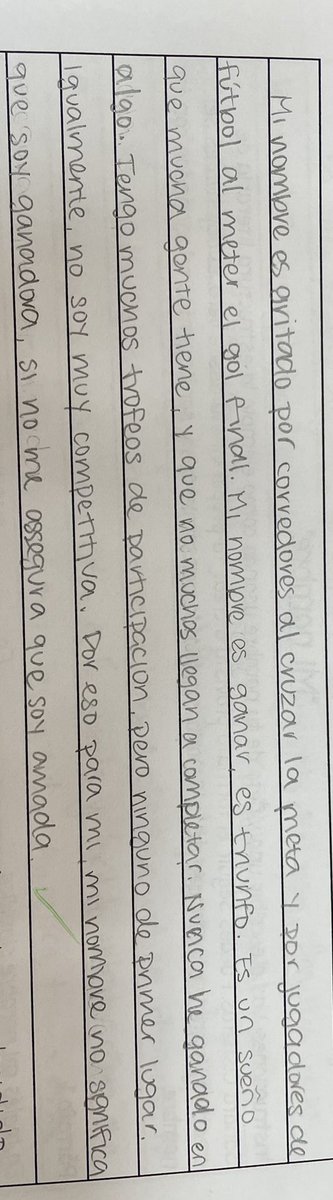 Mi nombre es gritado por corredores al cruzar la meta y por jugadores de
fútbol al meter el gol final. Mi nombre es ganar, es triunfo. Es un sueño
que mucha gente tiene, y que no muchos llegan a completar. Nunca he ganado en
algo. Tengo muchos trofeos de participación, pero ninguno de primer lugar.
Igualmente, no soy muy competitiva. Por eso para mi, mi nombre no significa
que soy ganadora, si no me assegura que soy amada.